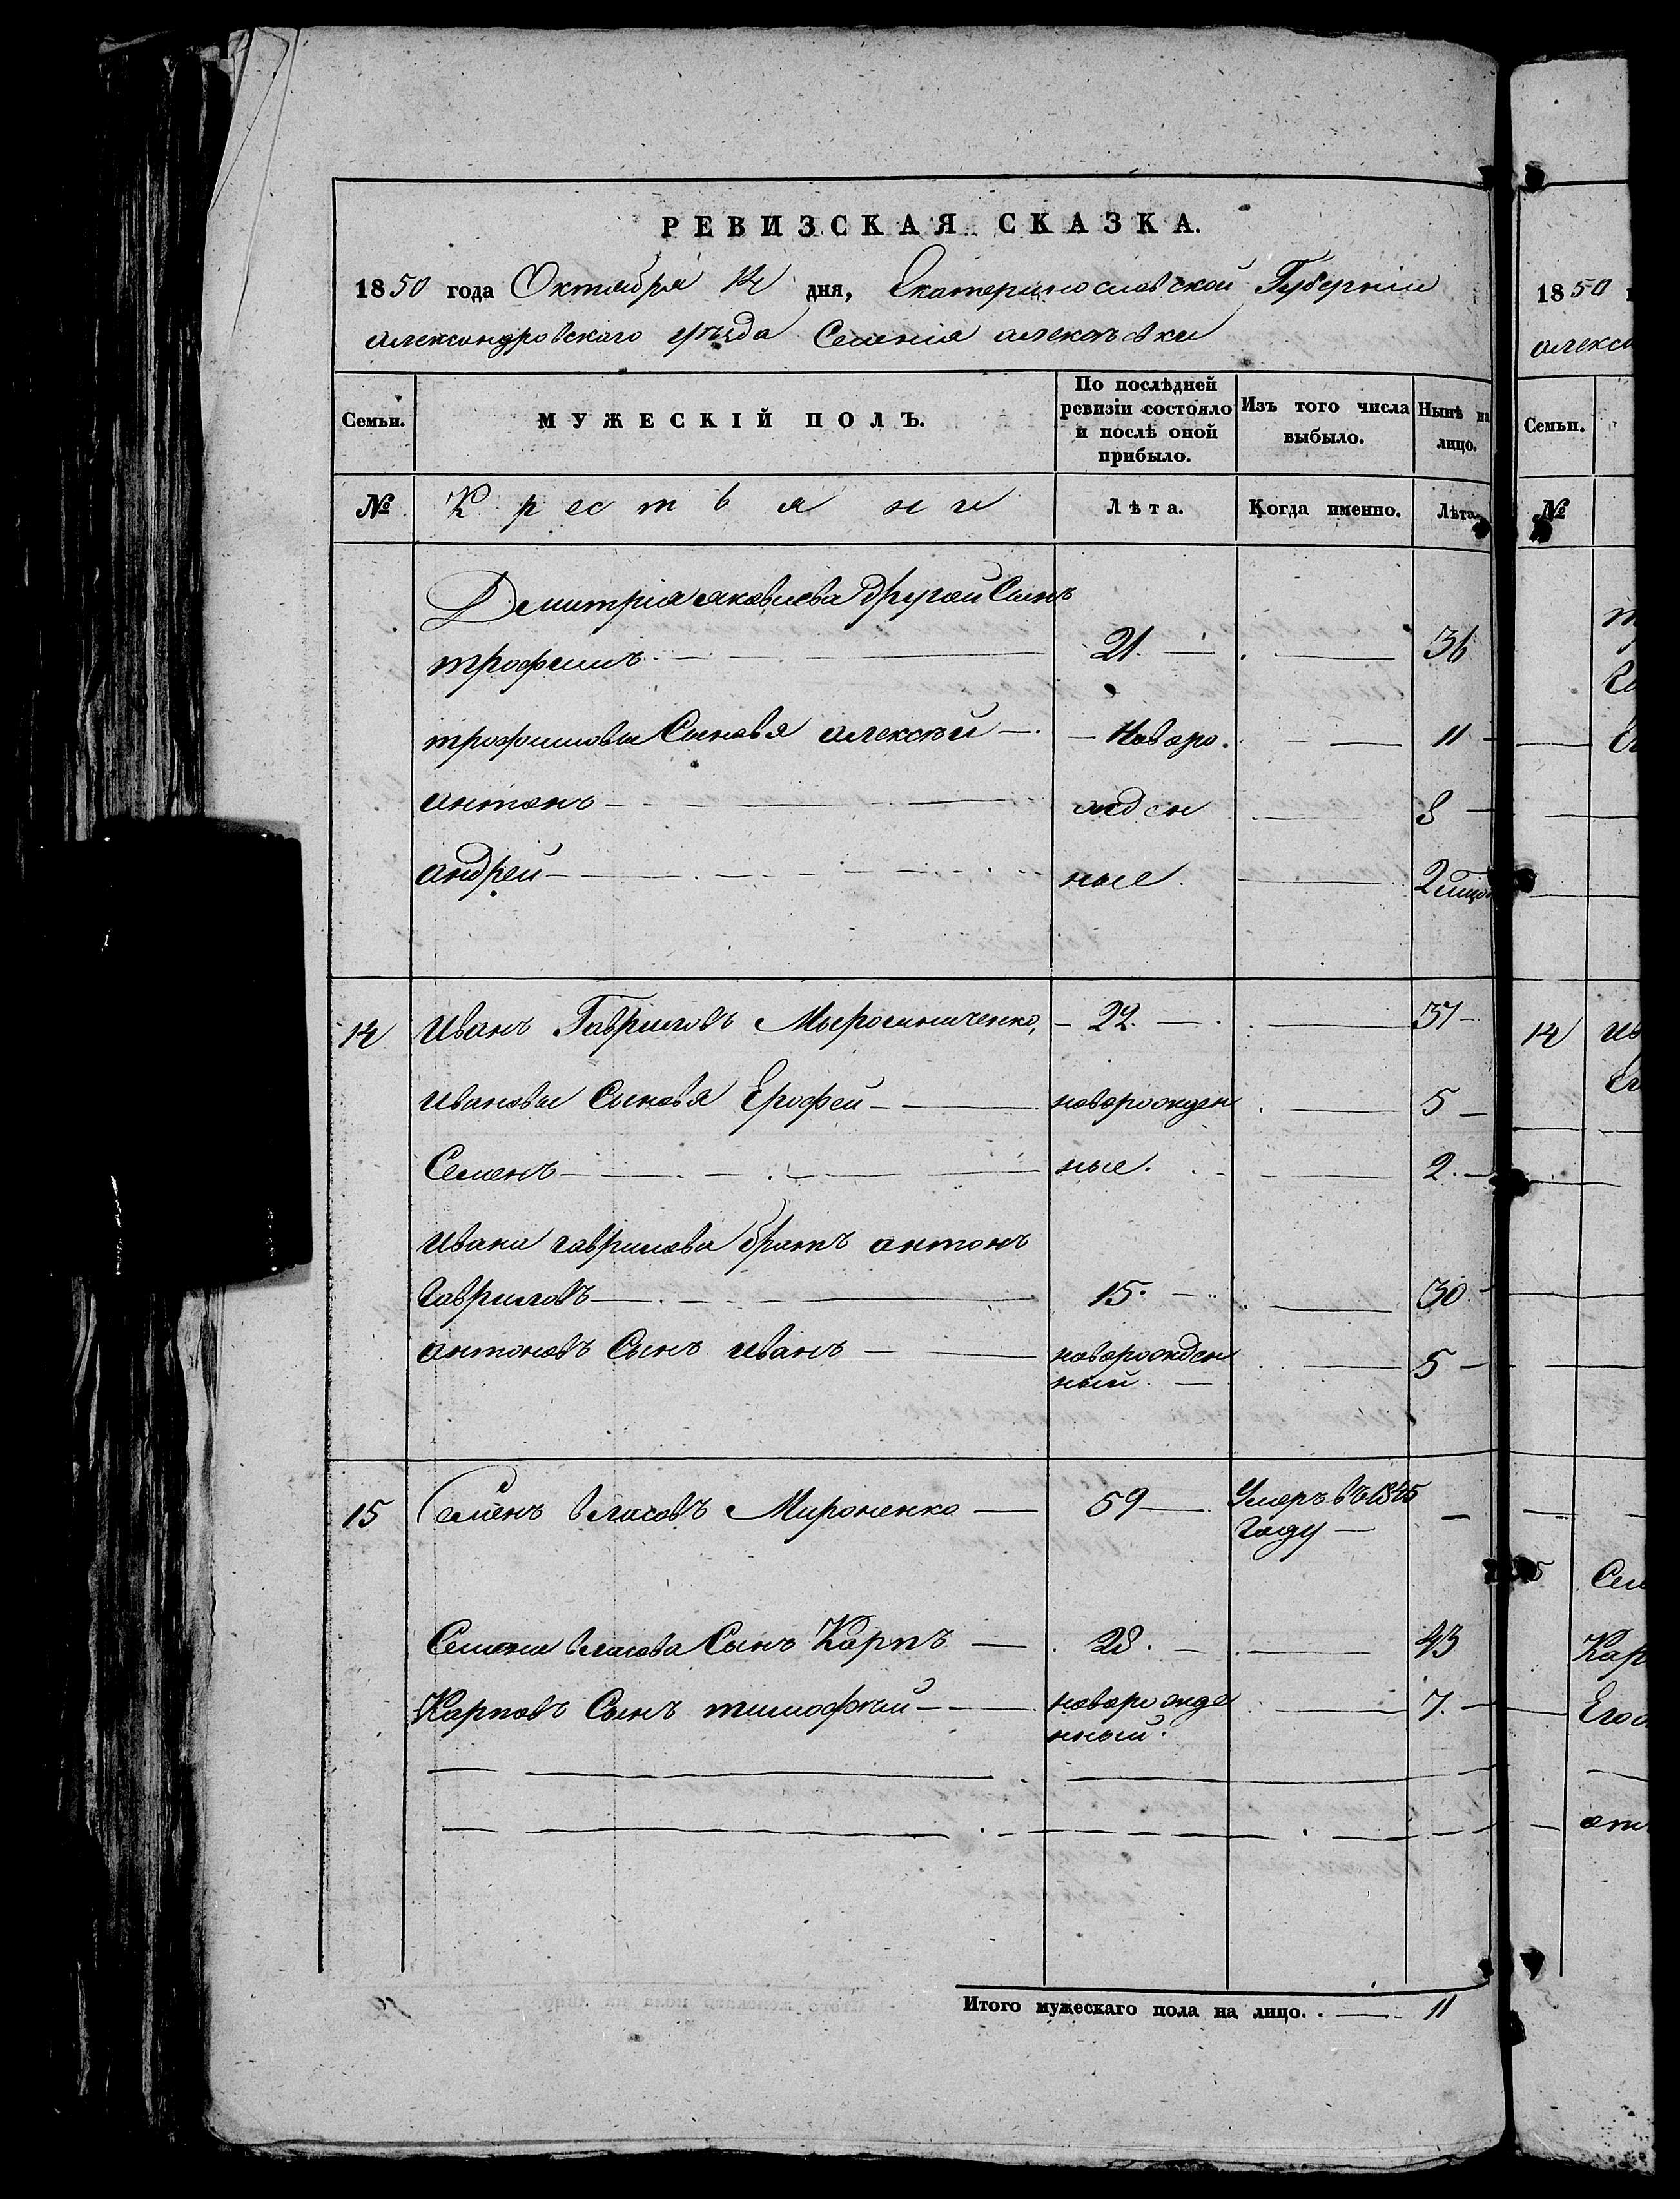 РЕВИЗСКАЯ СКАЗКА.
1850 года Октября 14 дня, Екатеринославской Губерніи
александровского уѣзда Селенія алексѣевки
Семьи. МУЖЕСКІЙ ПОЛЪ. По послѣдней ревизіи состояло и послѣ оной прибыло. Изъ того числа выбыло. Нынѣ на лицо.
№ Крестьяни Лѣта. Когда именно. Лѣта.
Дмитрія яковлева другой Сынъ
трофимъ 21. 36
трофимовы Сыновя алексѣй Новоро. 11
антонъ жден 8
андрей ные 2
14 Иванъ Гавриловъ Мирошниченко, 22. 37
Ивановы Сыновя Ерофей новорожден 5
Семенъ ные. 2.
Ивана гаврилова братъ антонъ
Гавриловъ 15. 30
антоновъ Сынъ иванъ новорожден 5
ный.
15 Семенъ власовъ Мироненко 59 Умеръ въ 1845 –
Году
Семена власова Сынъ Карпъ 28. 43
Карповъ Сынъ тимофѣй новорожде 7.
нный.
Итого мужескаго пола на лицо. 11
1850
алекса
Семьи.
№
14 ив
Сем
Кар
Его